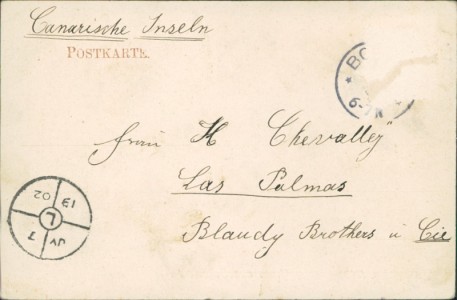 Canarische Inseln
POSTKARTE.
BO
6-7N
Frau H Chevalley
Las Palmas
Blaudy Brothers u Cie
L
JV 7
19 02